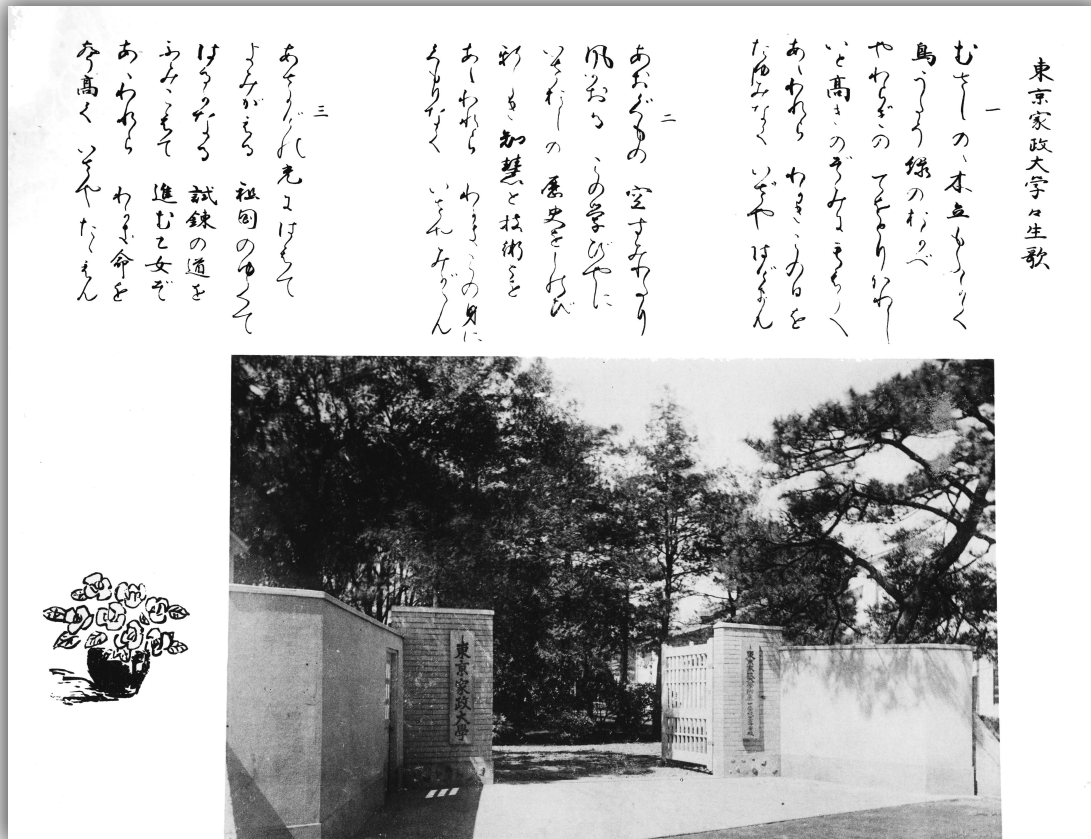 東京家政大学々生歌
一
むさしのゝ木立もふかく
鳥うたう 緑のおかべ
やわらぎの てをとりかわし
いと高きのぞみにもちて
あゝわれら わかきこの日を
たゆみなく いざや はげまん
二
あおぐもの 空すみわたり
風かおる この学びやに
いさおしの 歴史をしのび
新しき 知慧と技術を
あゝわれら わかきこの身に
くもりなく いざや みがかん
三
あさかぜの 光にはえて
よみがえる 祖国のゆくて
はるかなる 試錬の道を
ふみこえて 進む乙女ぞ
あゝわれら わかき命を
高く いざや たゝえん
東京家政大學